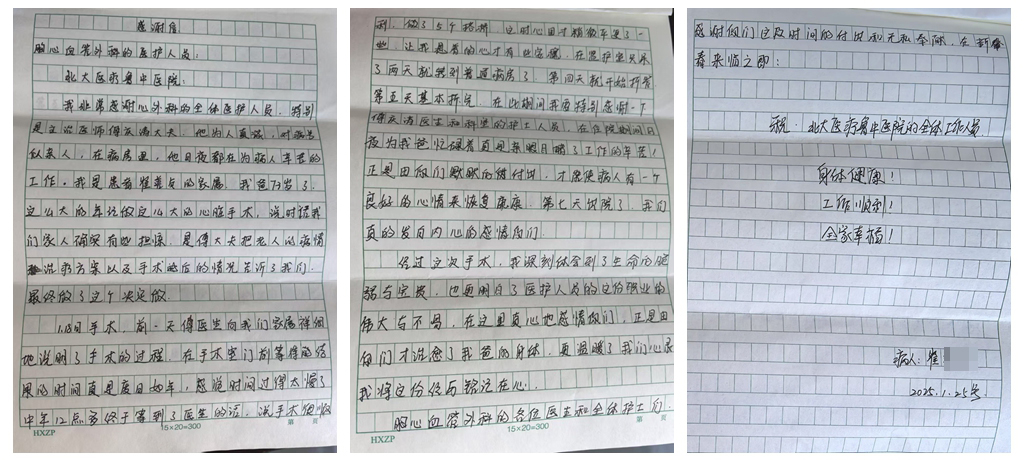 感谢信
胸心血管外科的医护人员:
北大医疗鲁中医院:
我非常感谢心外科的全体医护人员。特别
是主治医师傅云涛大夫。他为人真诚,对病患
似亲人,在病房里,他日夜都在为病人辛苦的
工作。我是患者崔善贞的家属,我爸73岁了
这么大的年纪做这么大的心脏手术,说时候我
们家人确实有些担惊,是傅大夫把老人的病情
治疗方案以及手术的后的情况告诉了我们。
最终做了这个决定做
1.18日手术,前一天傅医生向我们家属详细
地说明了手术的过程,在手术室门前等待的结
果的时间真是度日如年,感觉时间过得太慢了
中午12点多终于等到了医生的话,说手术很顺
利,做了5个搭桥,这时心里才稍微平复了一
些,让我悬着的心才有些安慰,在监护室只待
了两天就转到普通病房了。第四天就开始拆管
第五天基本拆完,在此期间我要特别感谢一个
傅云涛医生和科室的护士人员,在住院期间日
夜为我爸忙碌着真是亲眼目睹了工作的辛苦!
正是由你们默默的付出,才会使病人有一个
良好的心情来恢复健康。第七天出院了,我们
真的发自内心的感情你们
经过这次手术,我深刻体会到了生命的脆
弱与宝贵,也更明白了医护人员的这份职业的
伟大与不易,在这里真心地感谢你们,正是由
你们才治愈了我爸的身体,更温暖了我们心灵
我将这份经历铭记在心。
胸心血管外科的各位医生和全体护士们
HXZP
15×20=300
第 页
HXZP
15×20=300
第 页
感谢你们这段时间的付出和无私奉献,在新年
春来临之即:
祝:北大医疗鲁中医院的全体工作人员
身体健康!
工作顺利!
全家幸福!
病人:崔
2025.1.25号